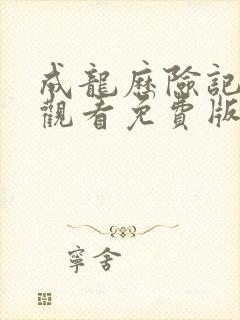 成龍歷險記
觀看免費版
寧舍